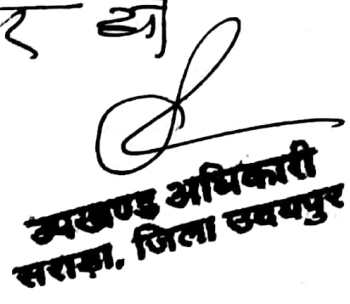 उपखण्ड अधिकारी
सराड़ा, जिला उदयपुर